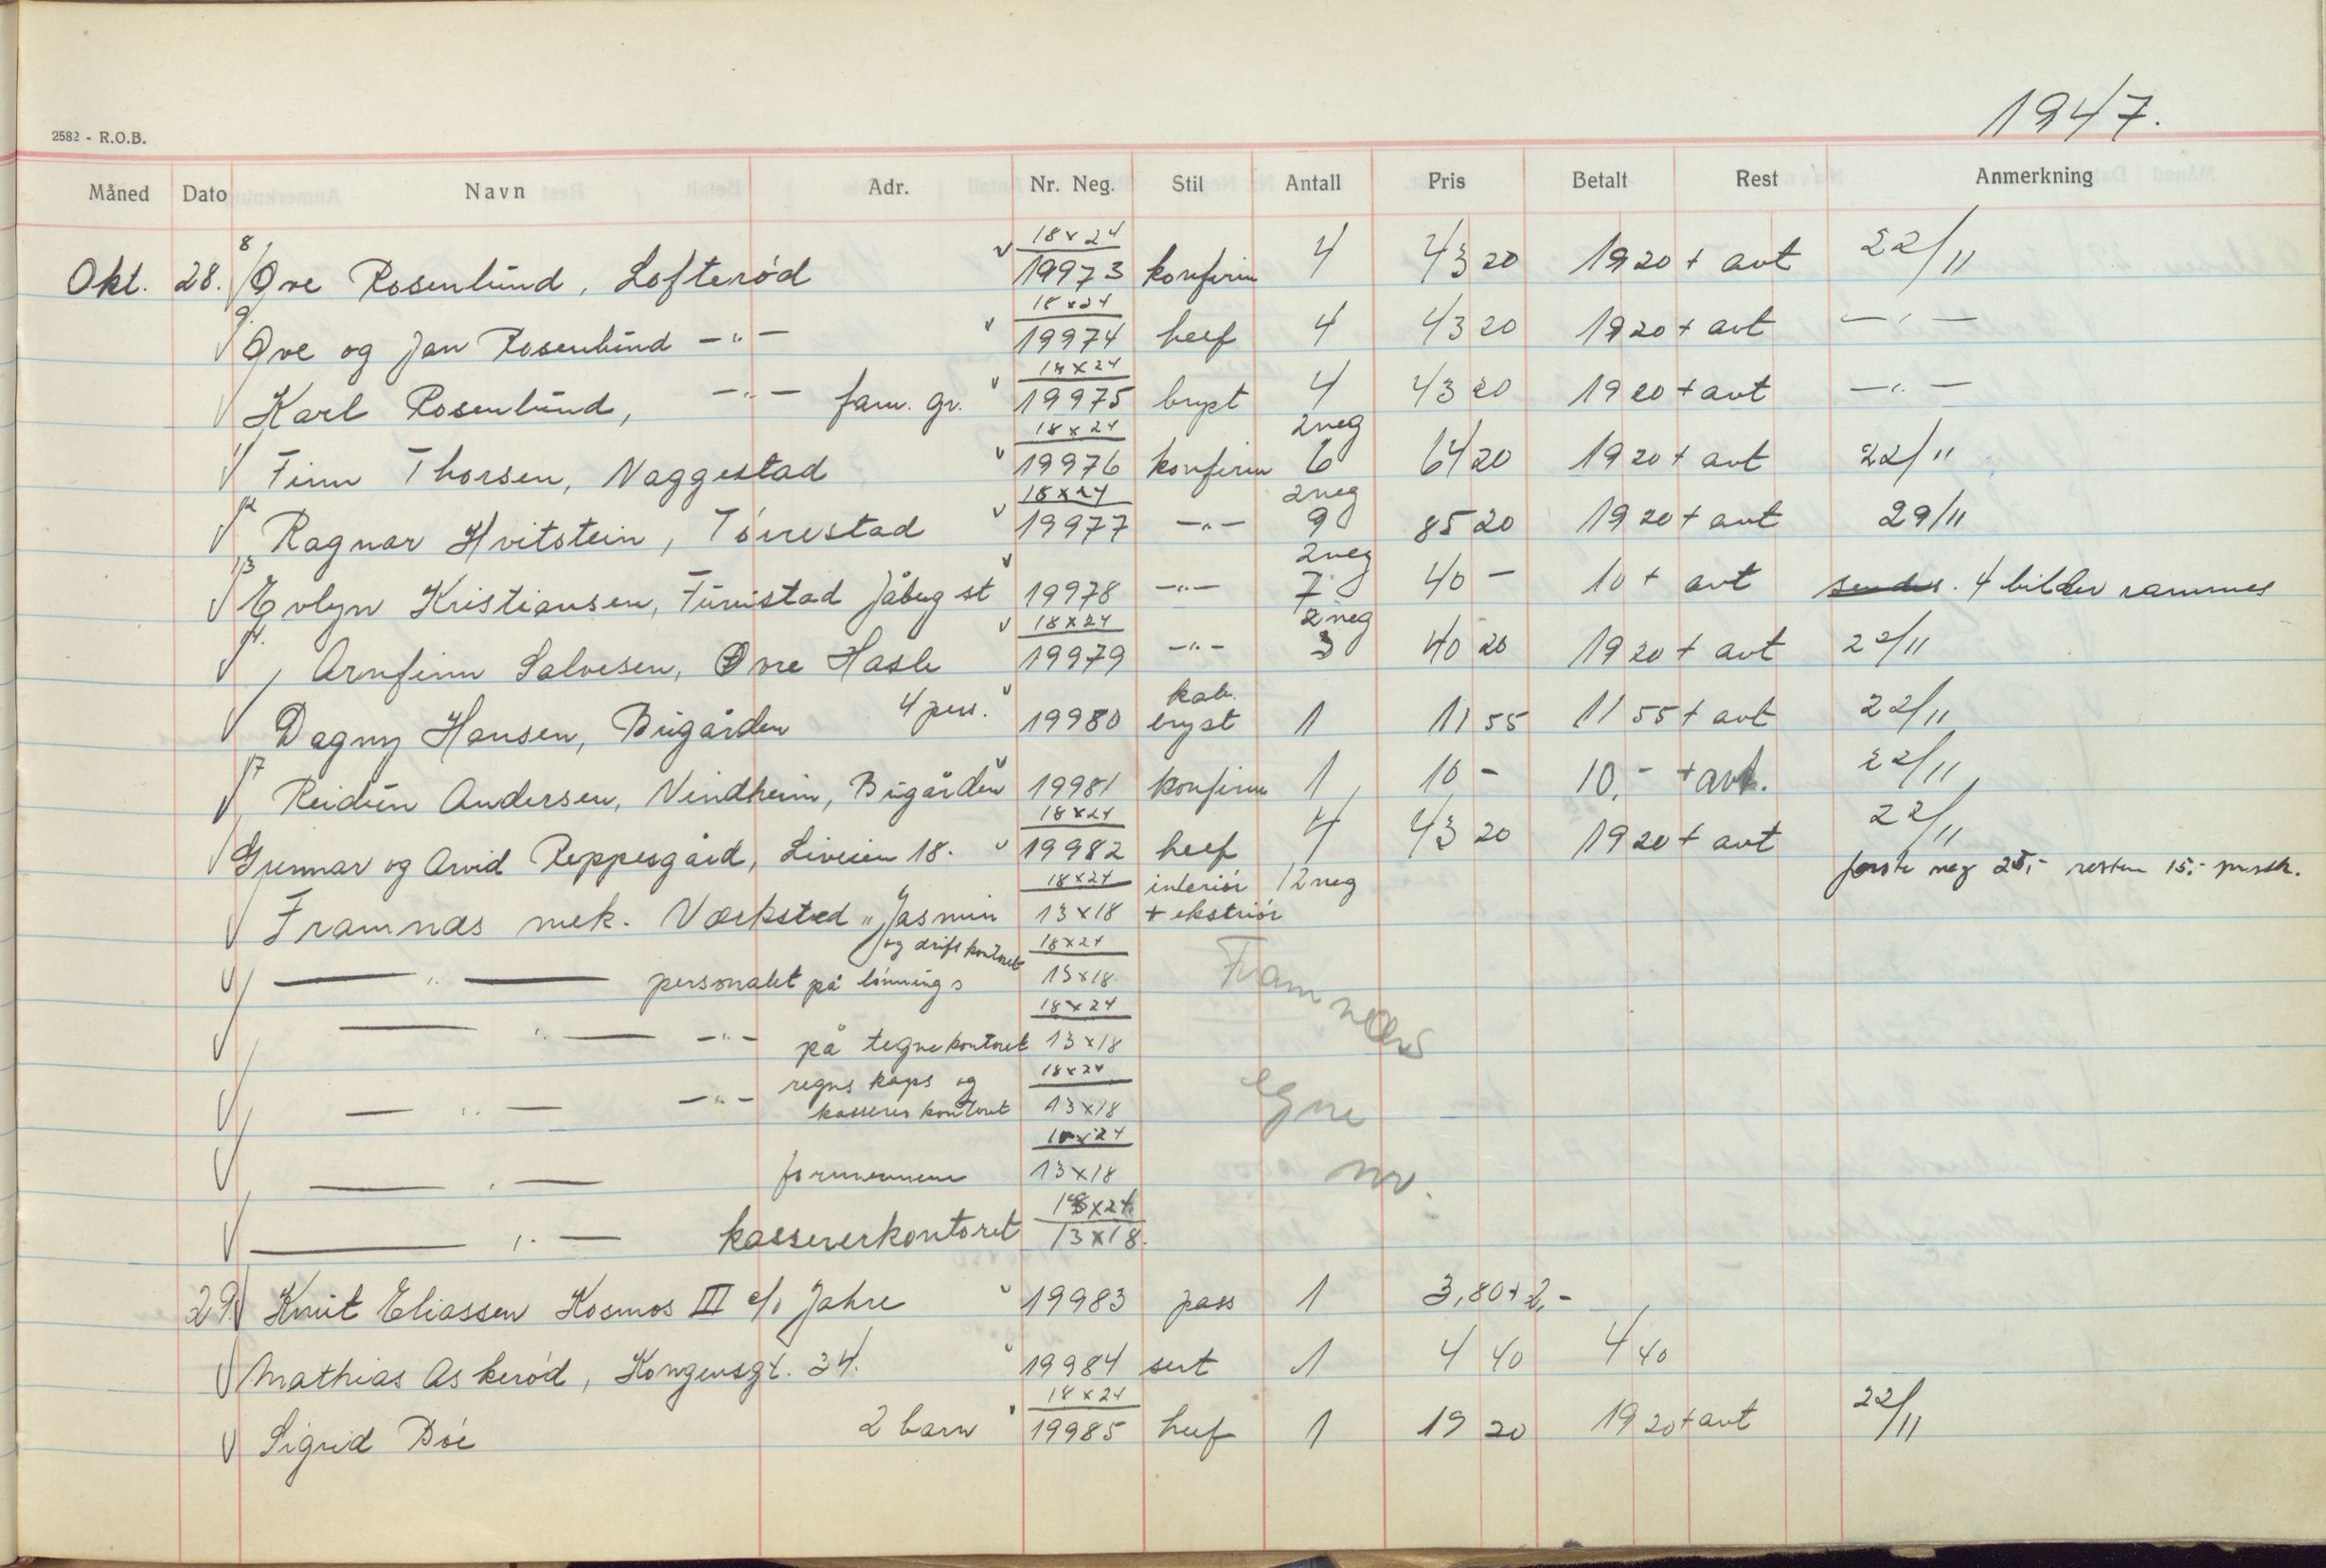 1947.
2582 - R.O.B.
Måned Dato Navn Adr. Nr. Neg. Stil Antall Pris Betalt Rest Anmerkning
18x24
Okt. 28. 8 Ove Rosenlund, Lofterød 19973 konfirm 4 43 20 19 20 + avt 22/11
18x24
9. Ove og Jan Rosenlund -"- 19974 heef 4 43 20 19 20 + avt -"-
18x24
Karl Rosenlund, -"- fam. gr. 19975 bryst 4 43 20 19 20 + avt -"-
18x24 2 neg
11 Finn Thorsen, Naggestad 19976 konfirm 6 64 20 19 20 + avt 22/11
18x24 2 neg
12 Ragnar Hvitstein, Tórrestad 19977 -"- 9 85 20 19 20 + avt 29/11
2 neg
13 Evlyn Kristiansen, Furustad Jåberg st 19978 -"- 7 40 - 10 + avt sendes. 4 bilder rammes
18x24 2 neg
14. Arnfinn Salvesen, Øvre Hasle 19979 -"- 3 40 20 19 20 + avt 22/11
kab.
Dagny Hansen, Bugården 4 pers. 19980 bryst 1 11 55 11 55 + avt 22/11
17 Reidun Andersen, Vindheim, Bugården 19981 konfirm 1 10 - 10,- + avt. 22/11
18x24
Gunnar og Arvid Reppesgård, Liveien 18. 19982 heef 4 43 20 19 20 + avt 22/11
18x24 interiór 12 neg første neg 25,- resten 15,- pr. stk.
Framnæs mek. Værksted „Jasmin 13x18 + eksteriór
og driftkontoret 18x24
-"- personalet på lónnings 13x18
18x24
-"- -"- på tegnekontoret 13x18
regnskaps og 18x24
-"- -"- kasserer kontoret 13x18
18x24
-"- formennene 13x18
18x24
-"- kassererkontoret 13x18.
Framnæs
egne
nr.
29. Knut Eliassen Kosmos III c/o Jahre 19983 pass 1 3,80 + 2,-
Mathias Askerød, Kongensgt. 34. 19984 sert 1 4 40 4 40
18x24
Sigrid Bóe 2 barn 19985 heef 1 19 20 19 20 + avt 22/11